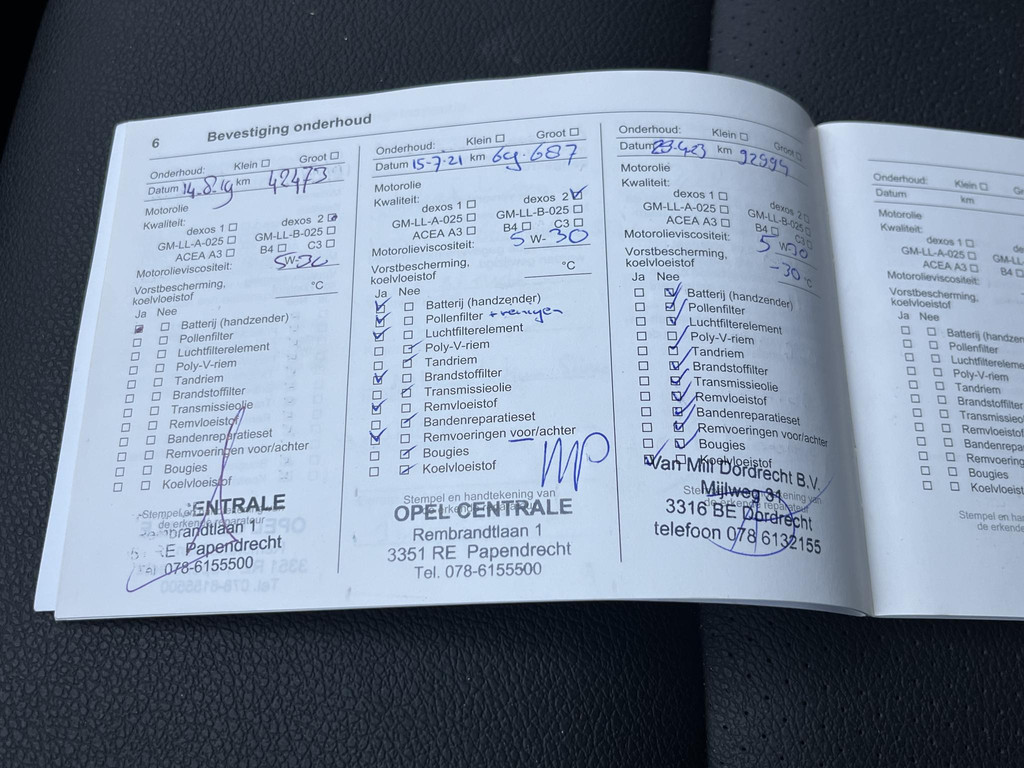 6 Bevestiging onderhoud
Onderhoud: Klein Groot
Datum 14.8.19 km 42473
Motorolie
Kwaliteit:
dexos 1 dexos 2
GM-LL-A-025 GM-LL-B-025
ACEA A3 B4 C3
Motorolieviscositeit: 5W-30
Vorstbescherming,
koelvloeistof °C
Ja Nee
Batterij (handzender)
Pollenfilter
Luchtfilterelement
Poly-V-riem
Tandriem
Brandstoffilter
Transmissieolie
Remvloeistof
Bandenreparatieset
Remvoeringen voor/achter
Bougies
Koelvloeistof
Stempel en handtekening van
de erkende reparateur
ENTRALE
Rembrandtlaan 1
RE Papendrecht
Tel. 078-6155500
Onderhoud: Klein Groot
Datum 15-7-21 km 69.687
Motorolie
Kwaliteit:
dexos 1 dexos 2
GM-LL-A-025 GM-LL-B-025
ACEA A3 B4 C3
Motorolieviscositeit: 5 W-30
Vorstbescherming,
koelvloeistof °C
Ja Nee
Batterij (handzender)
Pollenfilter + reinigen
Luchtfilterelement
Poly-V-riem
Tandriem
Brandstoffilter
Transmissieolie
Remvloeistof
Bandenreparatieset
Remvoeringen voor/achter
Bougies
Koelvloeistof
Stempel en handtekening van
de erkende reparateur
OPEL CENTRALE
Rembrandtlaan 1
3351 RE Papendrecht
Tel. 078-6155500
Onderhoud: Klein Groot
Datum km 92994
Motorolie
Kwaliteit:
dexos 1 dexos 2
GM-LL-A-025 GM-LL-B-025
ACEA A3 B4 C3
Motorolieviscositeit: 5 W30
Vorstbescherming,
koelvloeistof -30 °C
Ja Nee
Batterij (handzender)
Pollenfilter
Luchtfilterelement
Poly-V-riem
Tandriem
Brandstoffilter
Transmissieolie
Remvloeistof
Bandenreparatieset
Remvoeringen voor/achter
Bougies
Koelvloeistof
Stempel en handtekening van
de erkende reparateur
Van Mill Dordrecht B.V.
Mijlweg 31
3316 BE Dordrecht
telefoon 078 6132155
Onderhoud: Klein
Datum km
Motorolie
Kwaliteit:
dexos 1
GM-LL-A-025 GM-LL
ACEA A3 B4
Motorolieviscositeit:
Vorstbescherming,
koelvloeistof
Ja Nee
Batterij (handzen
Pollenfilter
Luchtfiltereleme
Poly-V-riem
Tandriem
Brandstoffilter
Transmissieo
Remvloeistof
Bandenrepara
Remvoeringen
Bougies
Koelvloeistof
Stempel en han
de erkende